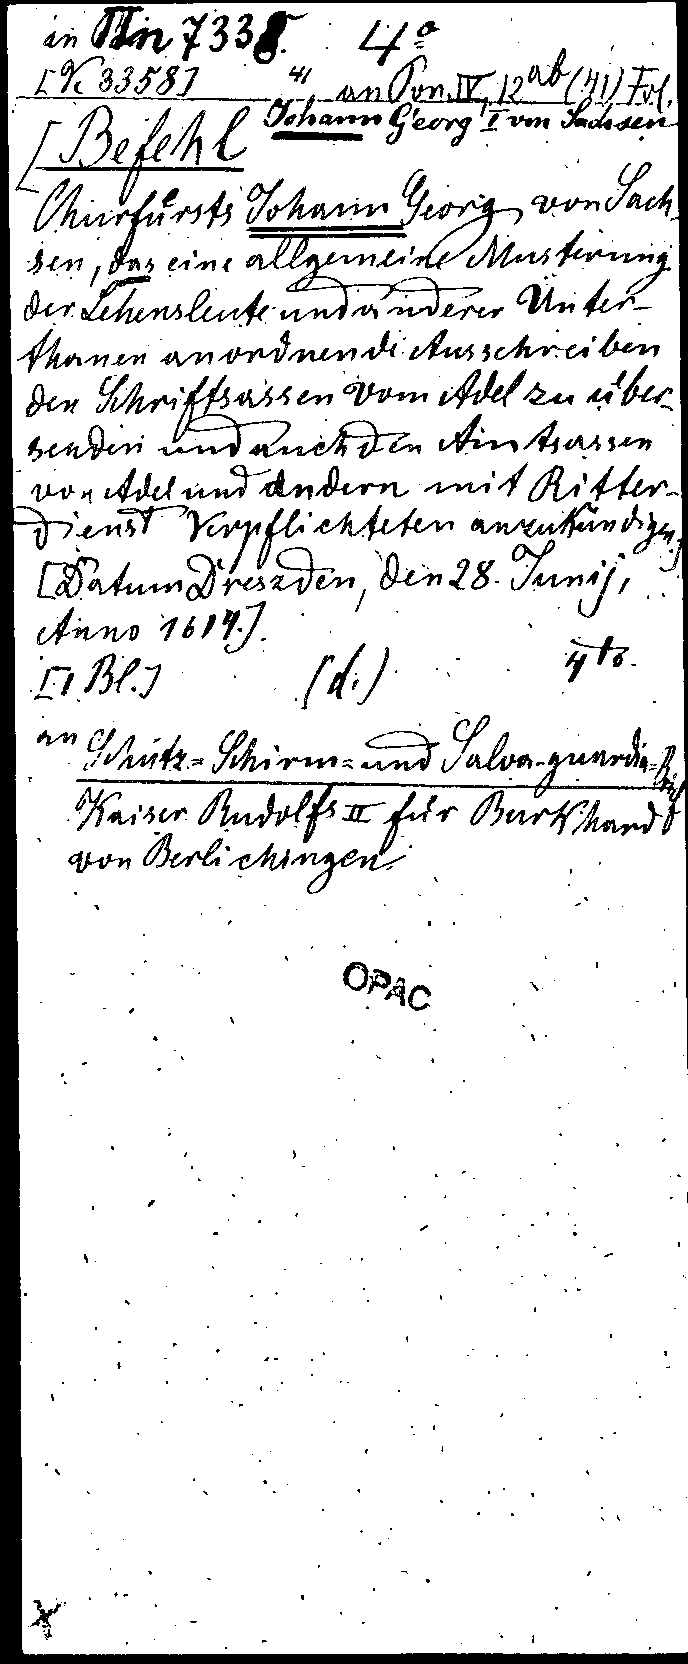 in IIn 7338. 4°
[K 3358] 41 an Pon. IV, 12ab (41) Fol.
Johann Georg I von Sachsen
[Befehl
Churfürsts Johann Georg von Sach-
sen, das eine allgemeine Musterung
der Lehensleute und anderer Unter-
thanen anordnende Ausschreiben
den Schriftsassen vom Adel zu über-
senden und auch den Amtsassen
von Adel und andern mit Ritter-
dienst Verpflichteten anzukündigen.]
[Datum Dreszden, den 28. Junij,
Anno 1614.]
[1 Bl.] (d.) 4to.
an Schutz- Schirm- und Salva-guardia-Brief
Kaiser Rudolfs II für Burkhard
von Berlichingen.
OPAC